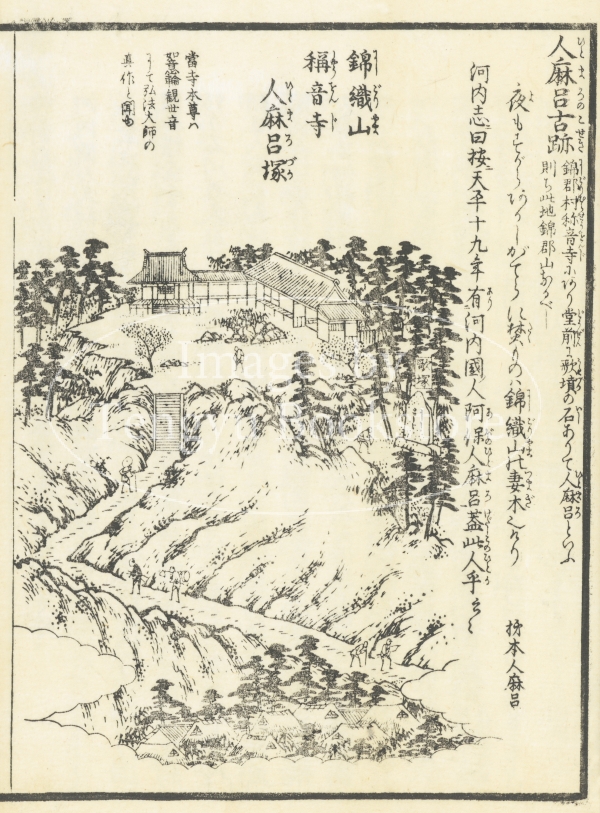 人麻呂古跡
錦郡村称音寺にあり堂前に歌墳の石ありて人麻呂といふ
則ち此地錦郡山なるべし
夜もすがら
焚ものハ錦織山の妻木なり
柿本人麻呂
河内志曰按天平十九年有河内國人阿保人麻呂蓋此人乎云々
錦織山
稱音寺
人麻呂塚
當寺本尊ハ
聖観世音
にて弘法大師の
真作と
歌塚
Images by
Tengya Bookstore